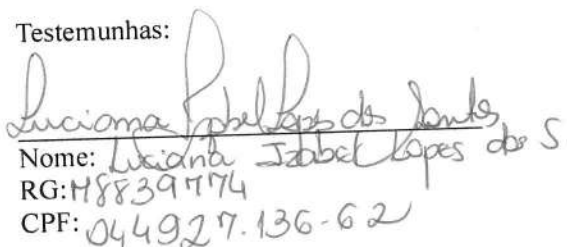 Testemunhas:
Luciana Izabel Lopes dos Santos
Nome: Luciana Izabel Lopes dos S
RG: M8839774
CPF: 044927.136-62